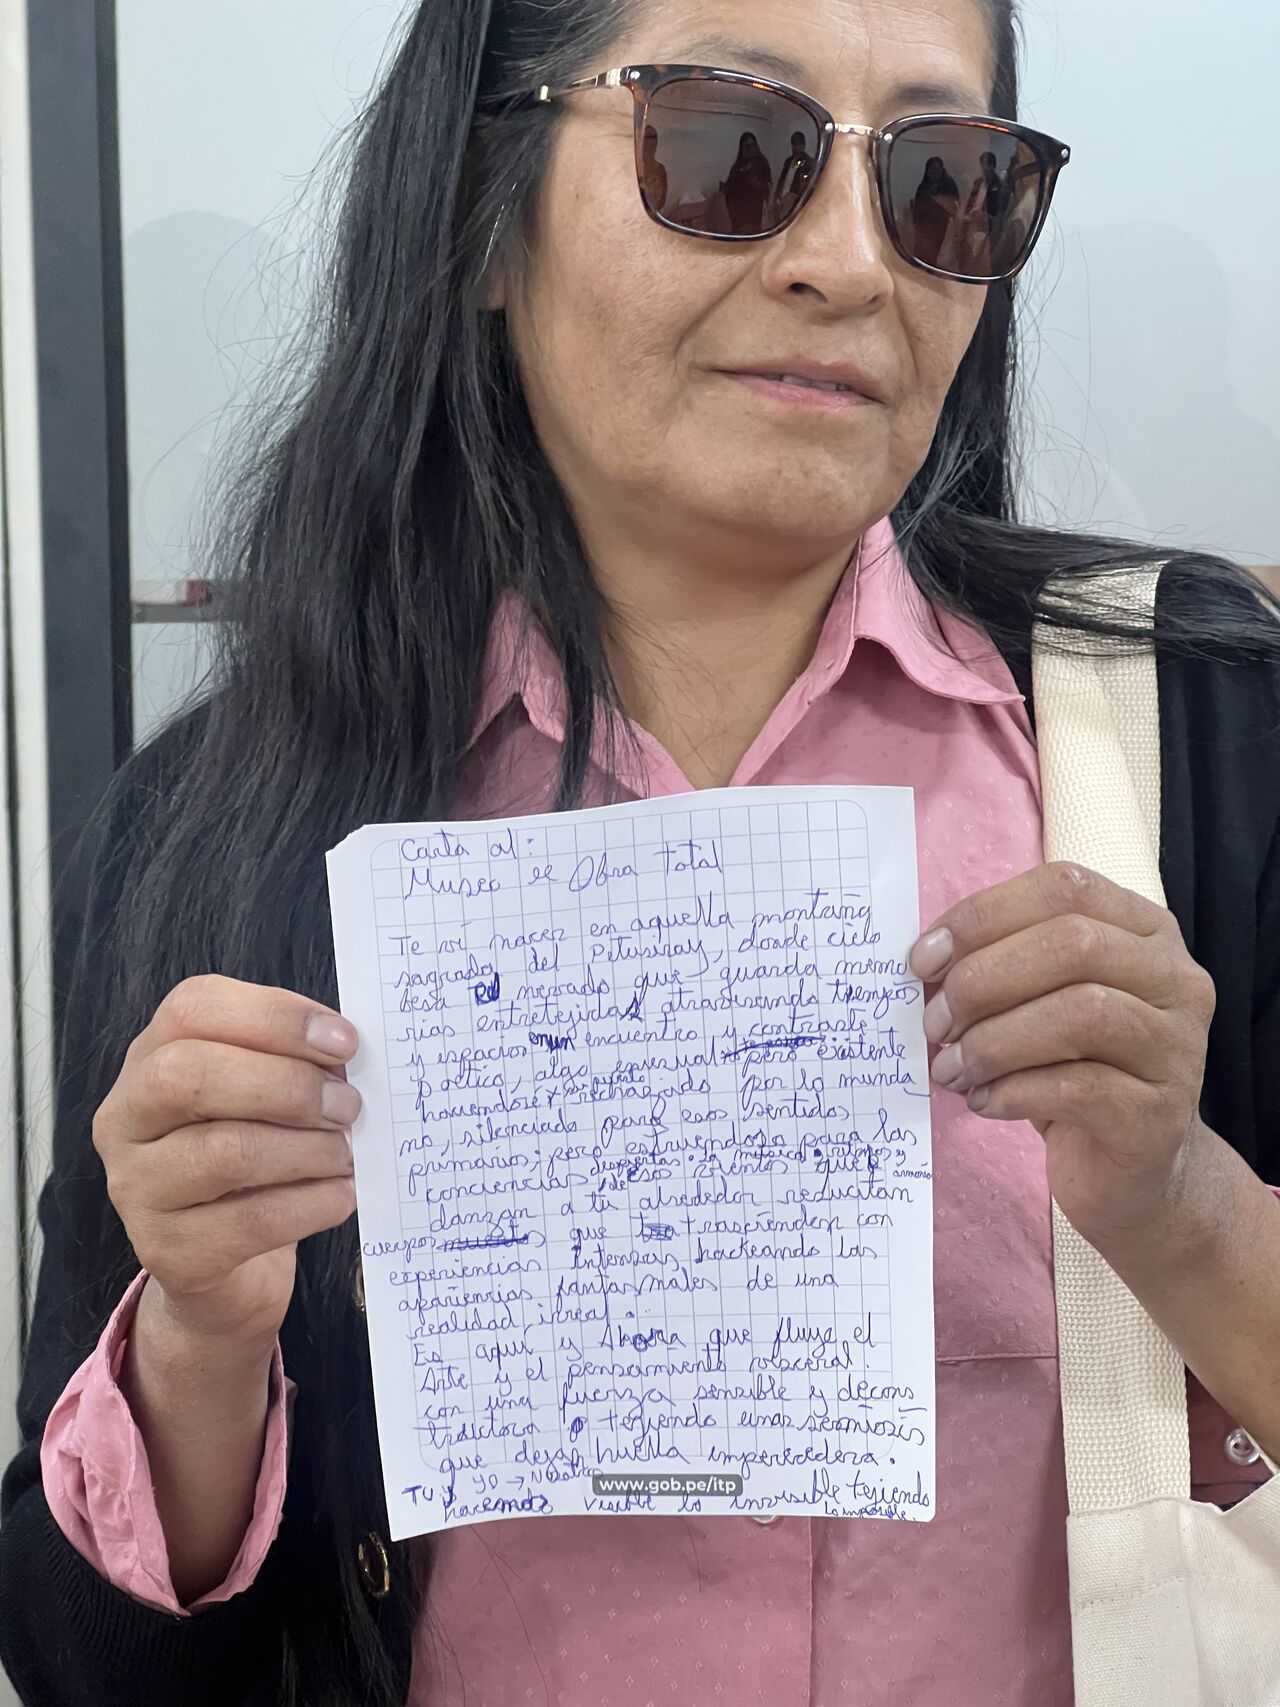 Carta al:
Museo de Obra total
Te ví nacer en aquella montañ
sagrada del Pitusiray, donde cielo
besa nevado que guarda memo
rias entretejidas atravesando tiempos
y espacios en un encuentro y contraste
poético, algo inusual pero existente
haciendose y rechazado por lo munda
no, silenciado para esos sentidos
primarios; pero estruendoso para las
conciencias despiertas. La música, ritmos y
de esos vientos que armonio
danzan a tu alrededor resucitan
cuerpos que trascienden con
experiencias intensas, hackeando las
apariencias fantasmales de una
realidad irreal.
Es aquí y Ahora que fluye el
Arte y el pensamiento visceral.
con una fuerza sensible y decons
tructora tejiendo unas semiosis
que dejan huella imperecedera.
Tu y yo → Nosotros
hacemos visible lo invisible tejiendo
lo imposible.
www.gob.pe/itp